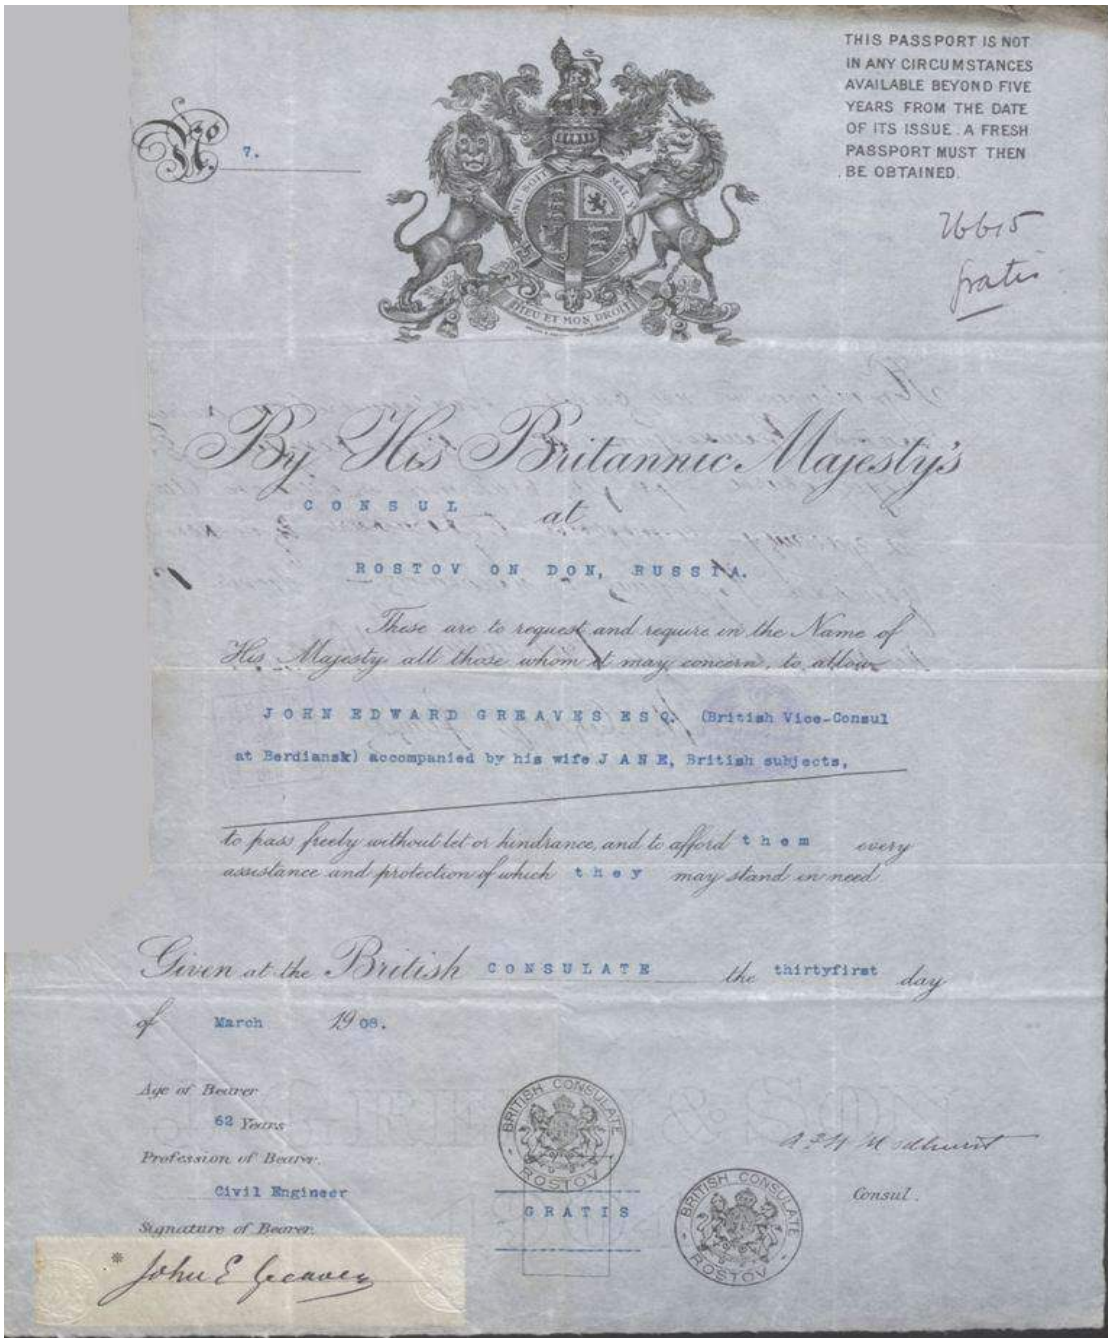 THIS PASSPORT IS NOT
IN ANY CIRCUMSTANCES
AVAILABLE BEYOND FIVE
YEARS FROM THE DATE
OF ITS ISSUE. A FRESH
PASSPORT MUST THEN
BE OBTAINED.
No. 7.
HONI SOIT MAL Y
DIEU ET MON DROIT
26615
Gratis
By His Britannic Majesty's
CONSUL at
ROSTOV ON DON, RUSSIA.
These are to request and require in the Name of
His Majesty all those whom it may concern, to allow
JOHN EDWARD GREAVES ESQ. (British Vice-Consul
at Berdiansk) accompanied by his wife JANE, British subjects,
to pass freely without let or hindrance, and to afford them every
assistance and protection of which they may stand in need
Given at the British CONSULATE the thirtyfirst day
of March 1908.
Age of Bearer
62 Years
Profession of Bearer.
Civil Engineer
Signature of Bearer.
* John E Greaves
BRITISH CONSULATE
ROSTOV
GRATIS
BRITISH CONSULATE
ROSTOV
Consul.